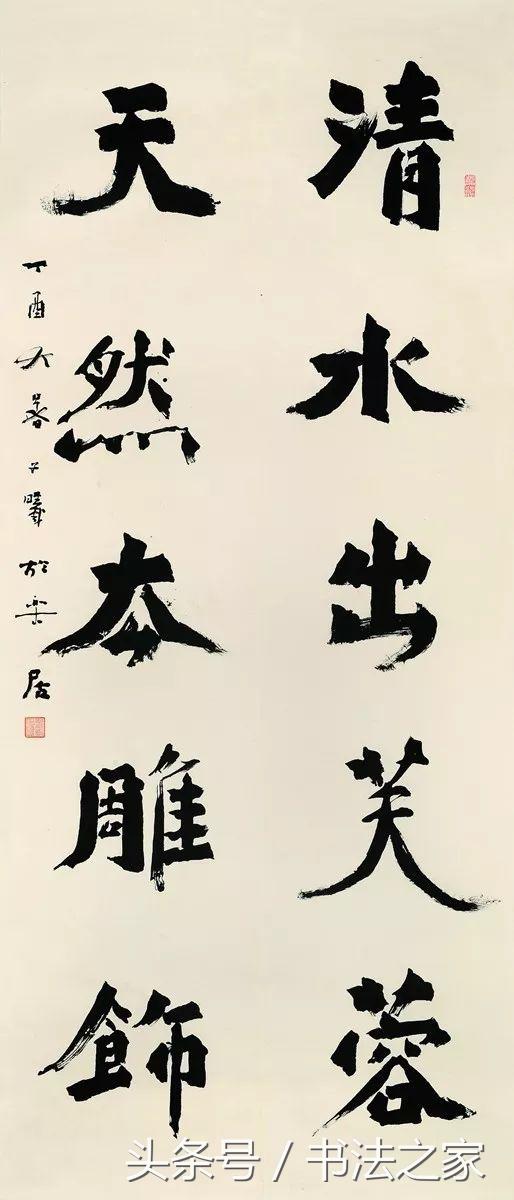 清水出芙蓉
天然去雕飾
丁酉大暑子曦於乐居
头条号 / 书法之家